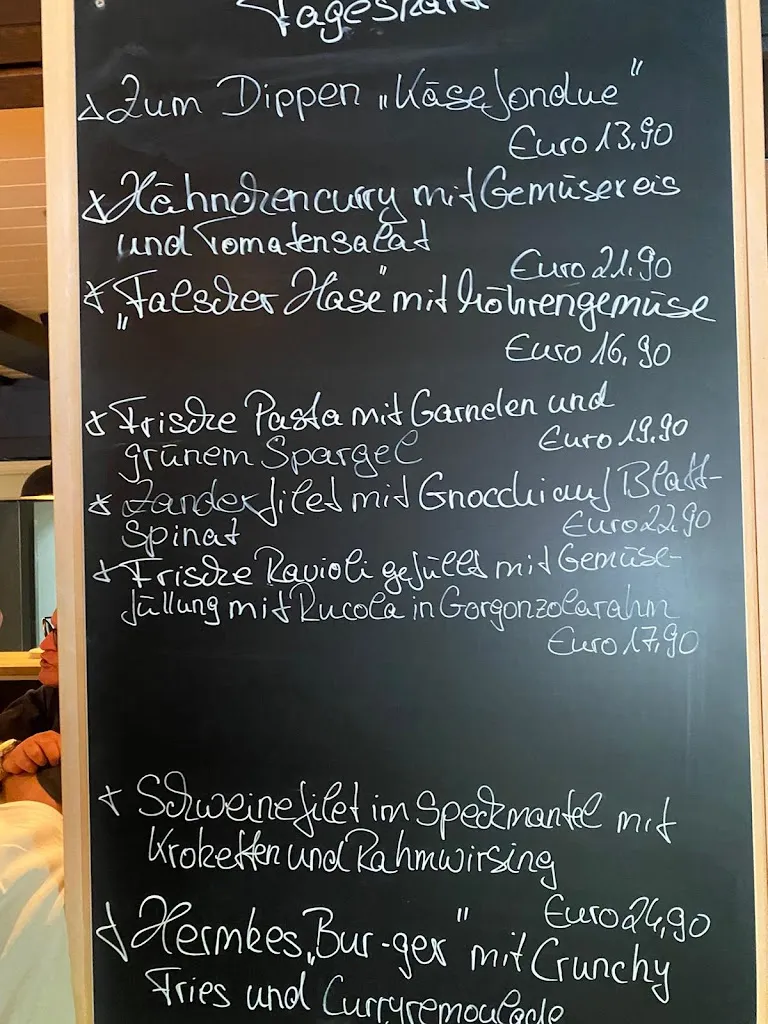 Tageskarte
Zum Dippen „Käsefondue"
Euro 13,90
Hähnchencurry mit Gemüsereis
und Tomatensalat
Euro 21,90
„Falscher Hase" mit Möhrengemüse
Euro 16,90
Frische Pasta mit Garnelen und
grünem Spargel Euro 19,90
Zanderfilet mit Gnocchi auf Blatt-
Spinat Euro 22,90
Frische Ravioli gefüllt mit Gemüse-
füllung mit Rucola in Gorgonzolarahm
Euro 17,90
Schweinefilet im Speckmantel mit
Kroketten und Rahmwirsing
Euro 24,90
Hermkes „Bur-ger" mit Crunchy
Fries und Curryremoulade